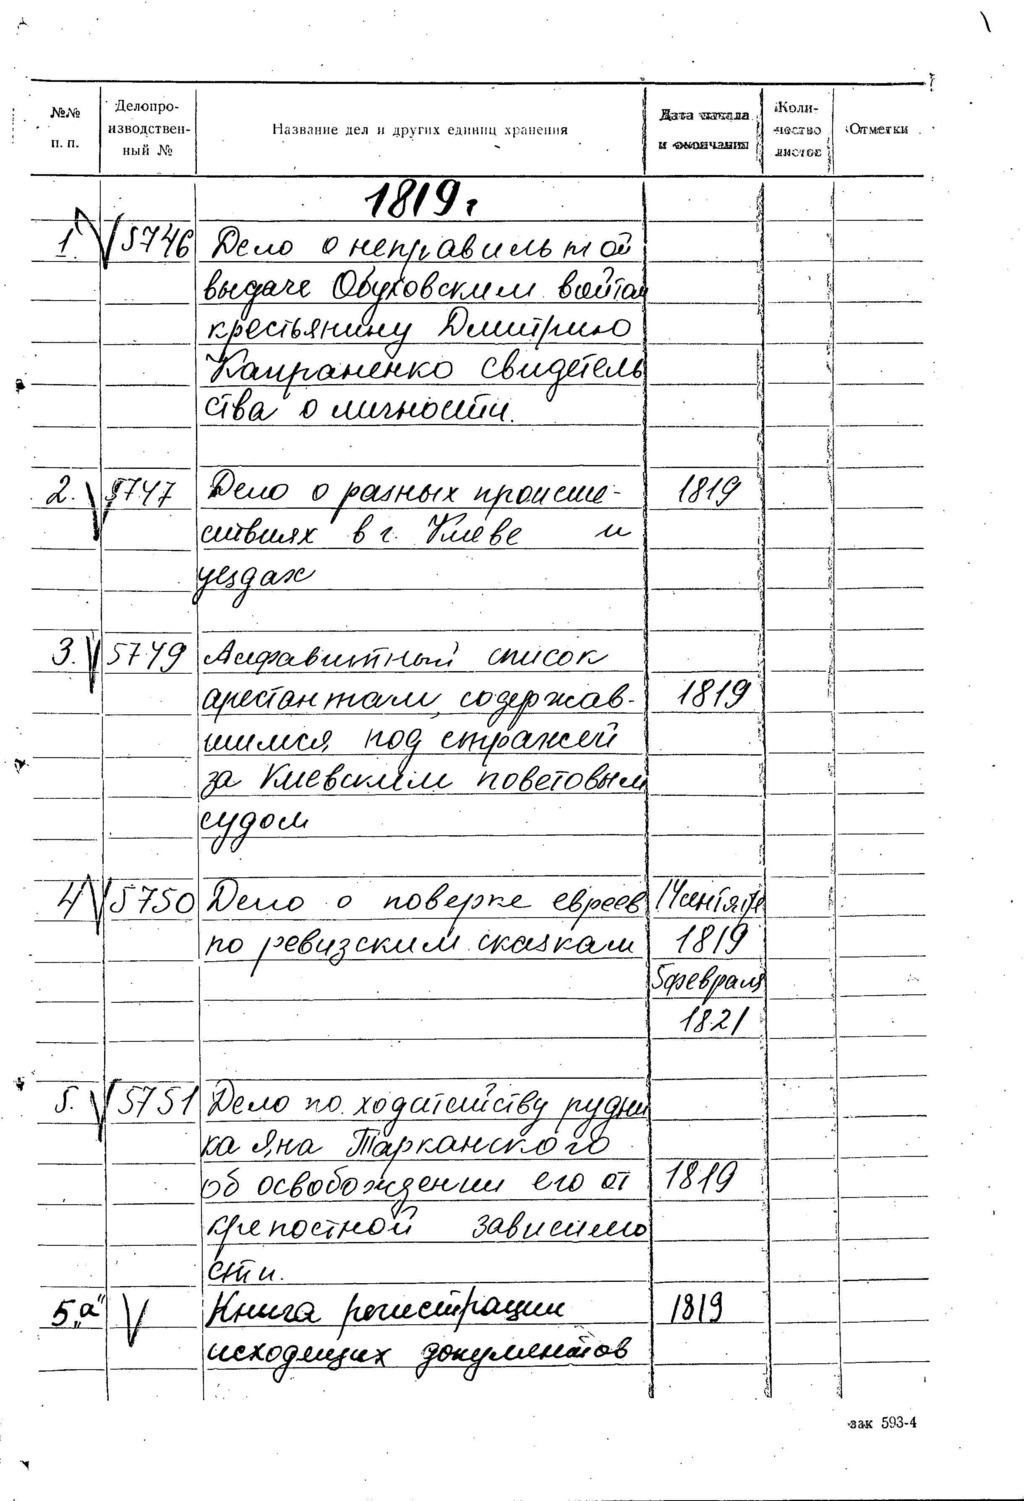 №№ п. п. Делопроизводственный № Название дел и других единиц хранения Дата начала и окончания Количество листов Отметки
1819 г
1. 5746 Дело о неправильной
выдаче Обуховским войтом
крестьянину Дмитрию
Капраненко свидетель
ства о личности.
2. 5747 Дело о разных происше- 1819
ствиях в г. Киеве и
уездах
3. 5749 Алфавитный список
арестантам, содержав- 1819
шимся под стражей
за Киевским поветовым
судом
4 5750 Дело о поверке евреев 14 сентября
по ревизским сказкам 1819
5 февраля
1821
5. 5751 Дело по ходатейству рудни
ка Яна Тарканского
об освобождении его от 1819
крепостной зависимо
сти.
5 „а“ Книга регистрации 1819
исходящих документов
зак 593-4